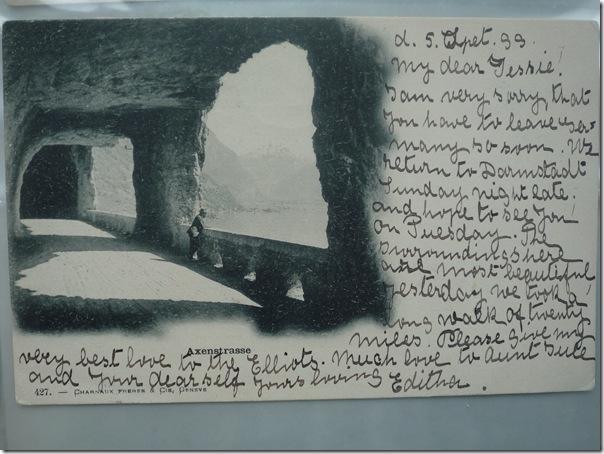 d. 5. Spet. 99.
My dear Jessie!
I am very sorry, that
you have to leave Ger=
many so soon. We
return to Darmstadt
Sunday night late,
and hope to see you
on Tuesday. The
surroundings here
are most beautiful
yesterday we took a
long walk of twenty
miles. Please give my
Axenstrasse
very best love to the Elliots. Much love to Aunt Jule
and your dear self Yours loving Editha.
427. — CHARNAUX FRÈRES & Cie, GENÈVE